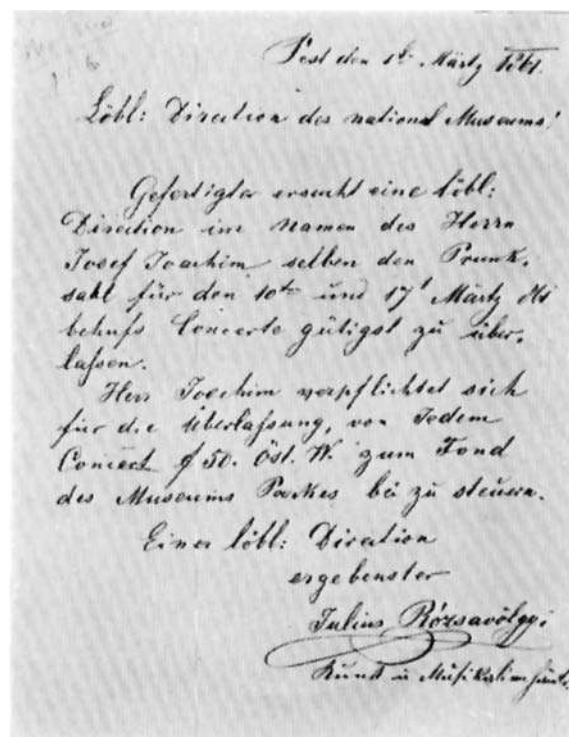 Pest den 1t März 1861.
Löbl: Direction des national Museums!
Gefertigter ersucht eine löbl:
Direction im Namen des Herrn
Josef Joachim selben den Prunk-
sahl für den 10ten und 17t März
behufs Concerte gütigst zu über-
lassen.
Herr Joachim verpflichtet sich
für die Überlassung, von Jedem
Concert f 50. Öst. W. zum Fond
des Museums Parkes bei zu steuern.
Einer löbl: Direction
ergebenster
Julius Rózsavölgyi
Kunst u Musikalienhändler